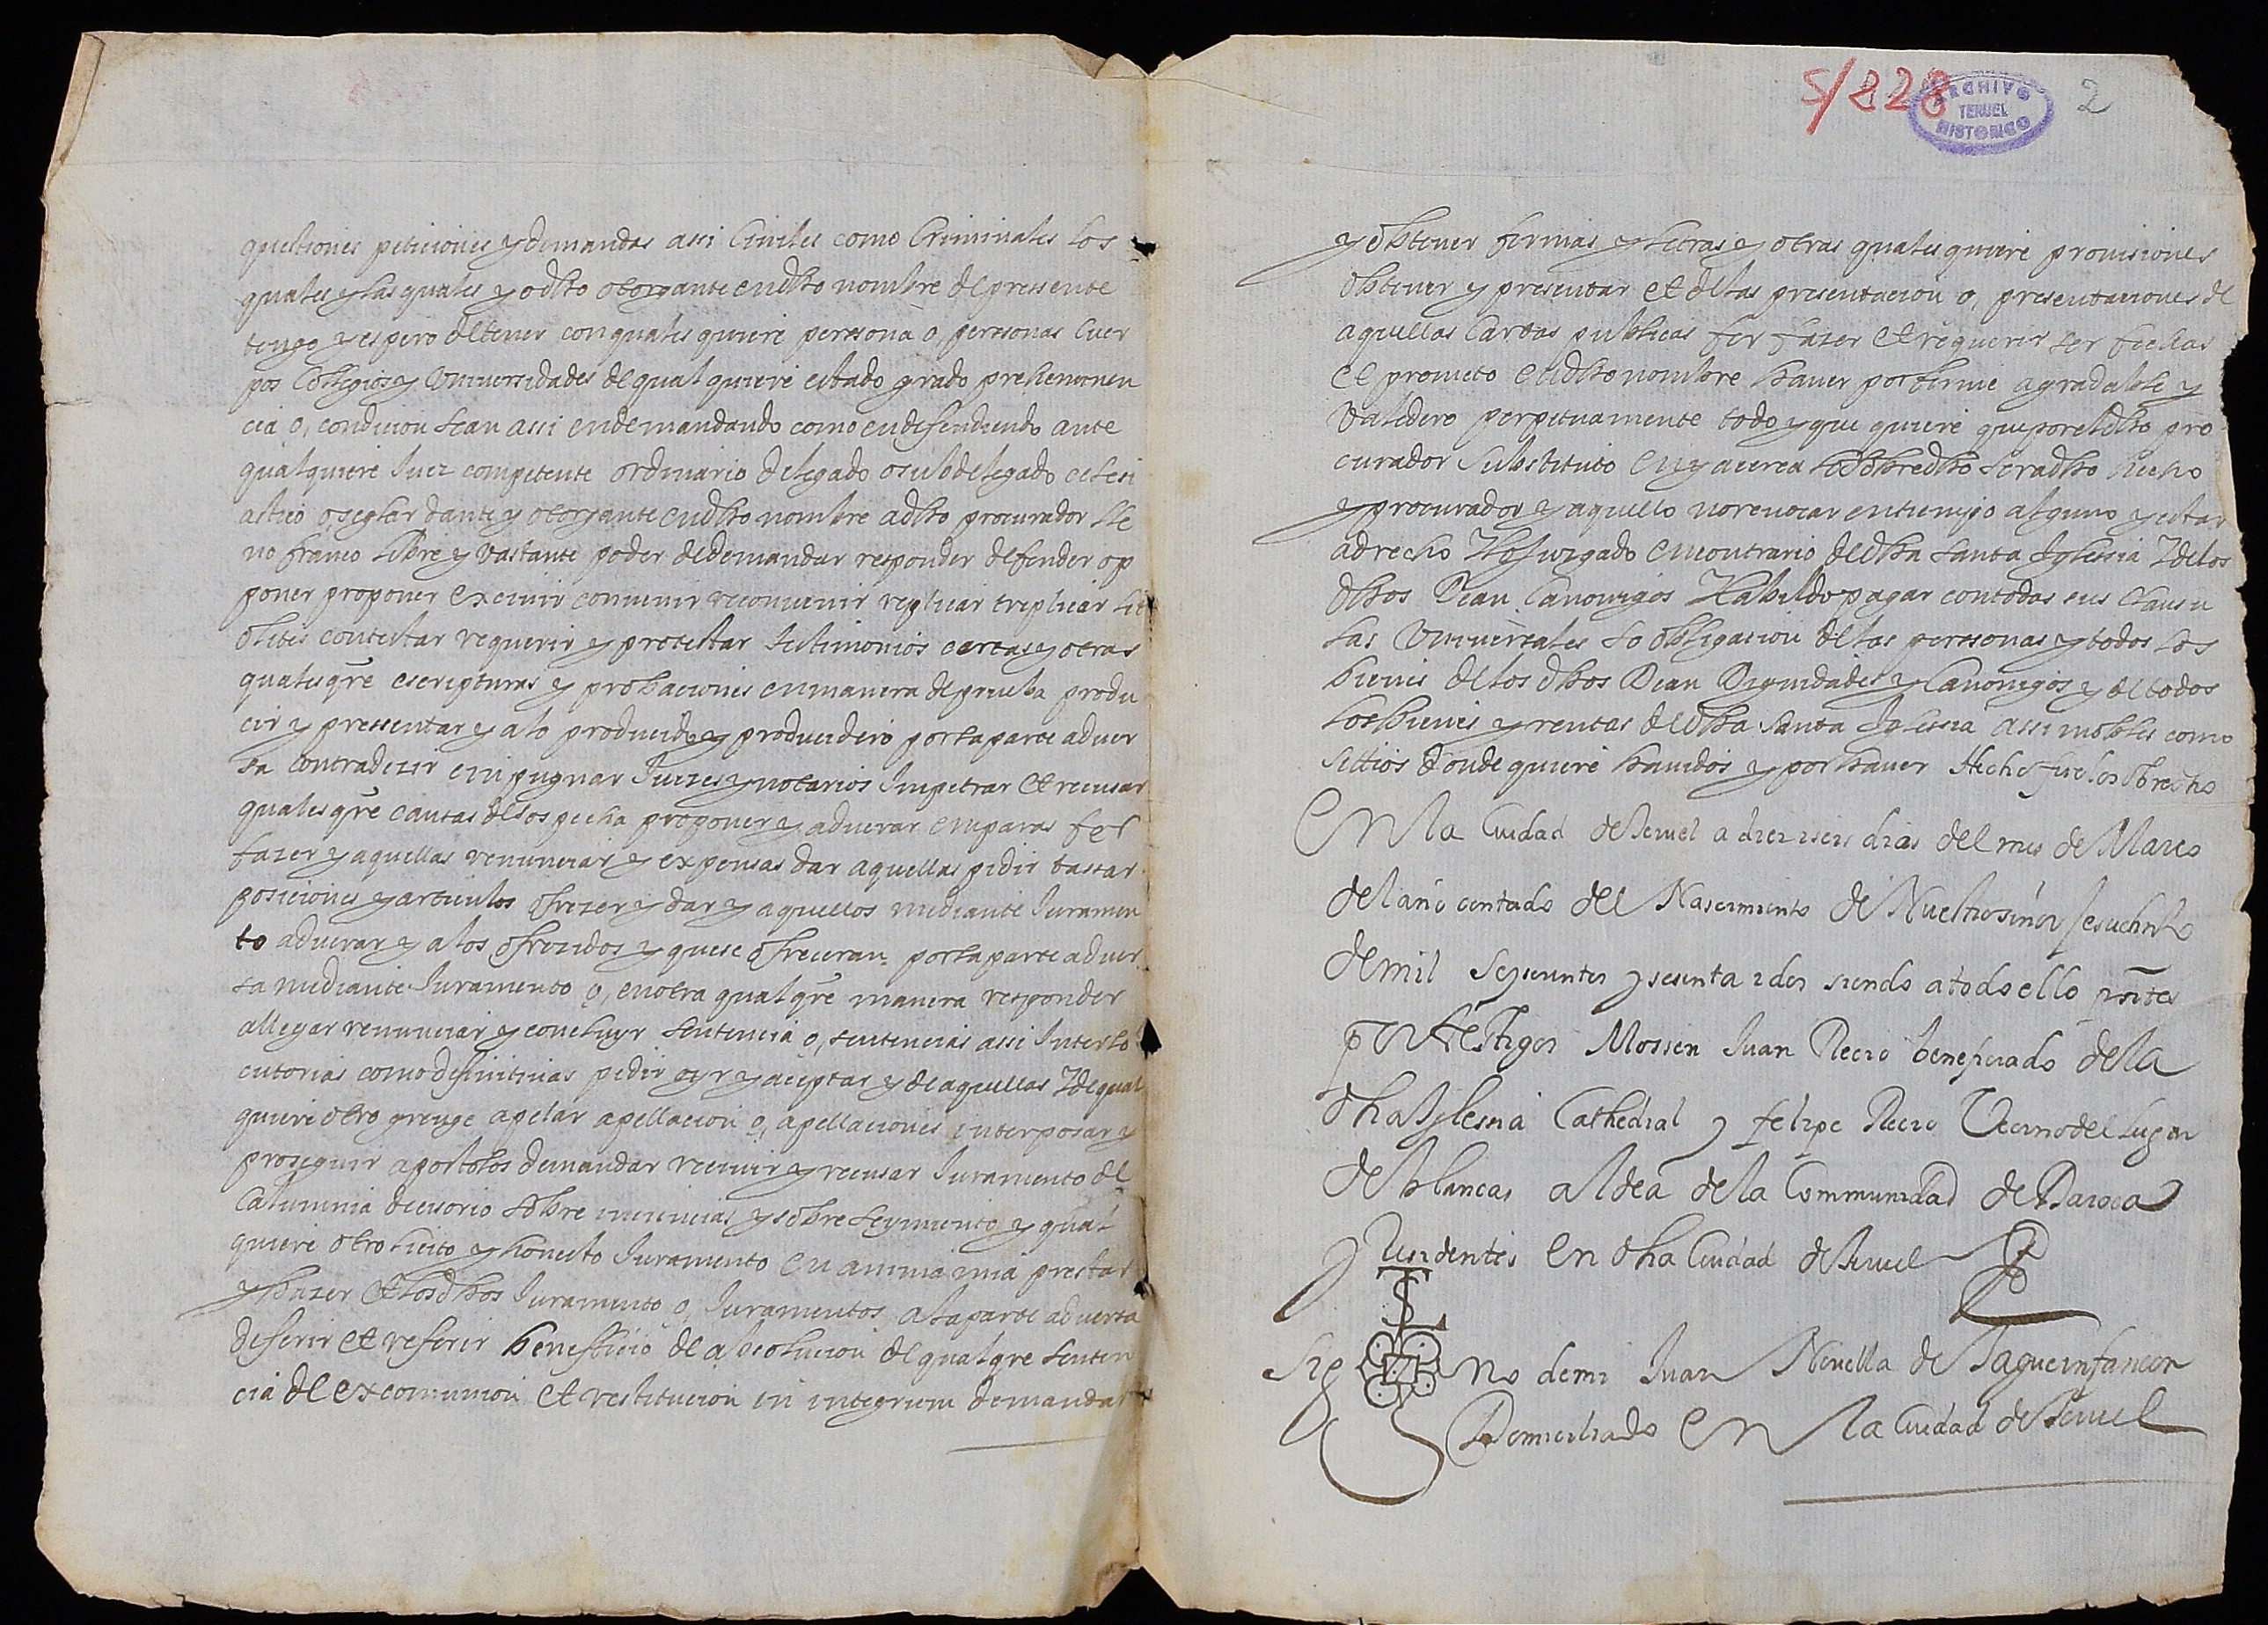 questiones peticiones y demandas assi Civiles como Criminales los
quales y las quales yo dho otorgante en dho nombre de pressente
tengo y espero de tener con quales quiere perssona o, perssonas Cuer
pos Collegios y Universsidades de qual quiere estado grado prehemenen
cia o, condicion sean assi en demandando como en defendiendo ante
qualquiere Juez competente ordinario delegado o subdelegado eclesi
astico o, seglar dante y otorgante en dho nombre a dho procurador lle
no franco libre y vastante poder de demandar responder defender op
poner proponer excivir convenir reconvenir replicar treplicar lit
o lites contestar requerir y protestar testimonios cartas y otras
qualesqre escripturas y probaciones en manera de prueba produ
cir y pressentar y a lo producido y producidero por la parte adver
sa contradezir empugnar Juezes y notarios Impetrar et recusar
quales qre causas de sospecha proponer y adverar emparas fer
fazer y aquellas renunciar y expensas dar aquellas pidir tassar
posiciones y articulos ofrezer y dar y aquellos mediante Juramen
to adverar y a los ofrezidos y que se ofreceran por la parte adver
sa mediante Juramento o, en otra qualqre manera responder
allegar renunciar y concluyr sentencia o, sentencias assi Interlo
cutorias como difinitivas pidir oyr y aceptar y de aquellas Y de qual
quiere otro greuge apelar apellacion o, apellaciones interposar y
proseguir apostolos demandar recivir y recusar Juramento de
Calumnia decisorio sobre inciencias y sobre seymiento y qual
quiere otro licito y honesto Juramento en anima mia prestar
y hazer et los dhos Juramento o, Juramentos a la parte adversa
deferir et referir benefficio de absolucion de qualqre senten
cia de excomunion et restitucion in integrum demandar
5/828
ARCHIVO
TERUEL
HISTORICO
2
y obtener firmas y letras y otras quales quiere provisiones
obtener y presentar et de las presentacion o, presentaciones de
aquellas Cartas publicas fer fazer et requerir ser fechas
et prometo en dho nombre haver por firme agradable y
Valedero perpetuamente todo y que quiere que por el dho pro
curador Substituto en y acerca lo sobredho sera dho hecho
y procurado y aquello no revocar en tiempo alguno y estar
a drecho Y lo Juzgado en contrario de dha santa Iglessia Y de los
dhos Dean Canonigos Y Cabildo pagar con todas sus Clausu
las Universales so obligacion de las perssonas y todos los
bienes de los dhos Dean Dignidades y Canonigos y de todos
los bienes y rentas de dha santa Iglessia assi mobles como
sittios donde quiere havidos y por haver Hecho fue lo sobredho
En la Ciudad de Teruel a diez i seis dias del mes de Março
del año contado del Nascimiento de Nuestro Señor Jesuchristo
de mil Seyscientos y sesenta i dos siendo a todo ello pntes
por testigos Mossen Juan Recio beneficiado de la
dha Iglessia Cathedral y Felipe Recio Vecino del Lugar
de blancas aldea de la Communidad de Daroca
y Residentes en dha Ciudad de Teruel
Sig no de mi Juan Novella de Jaque infançon
Domiciliado en la Ciudad de Teruel